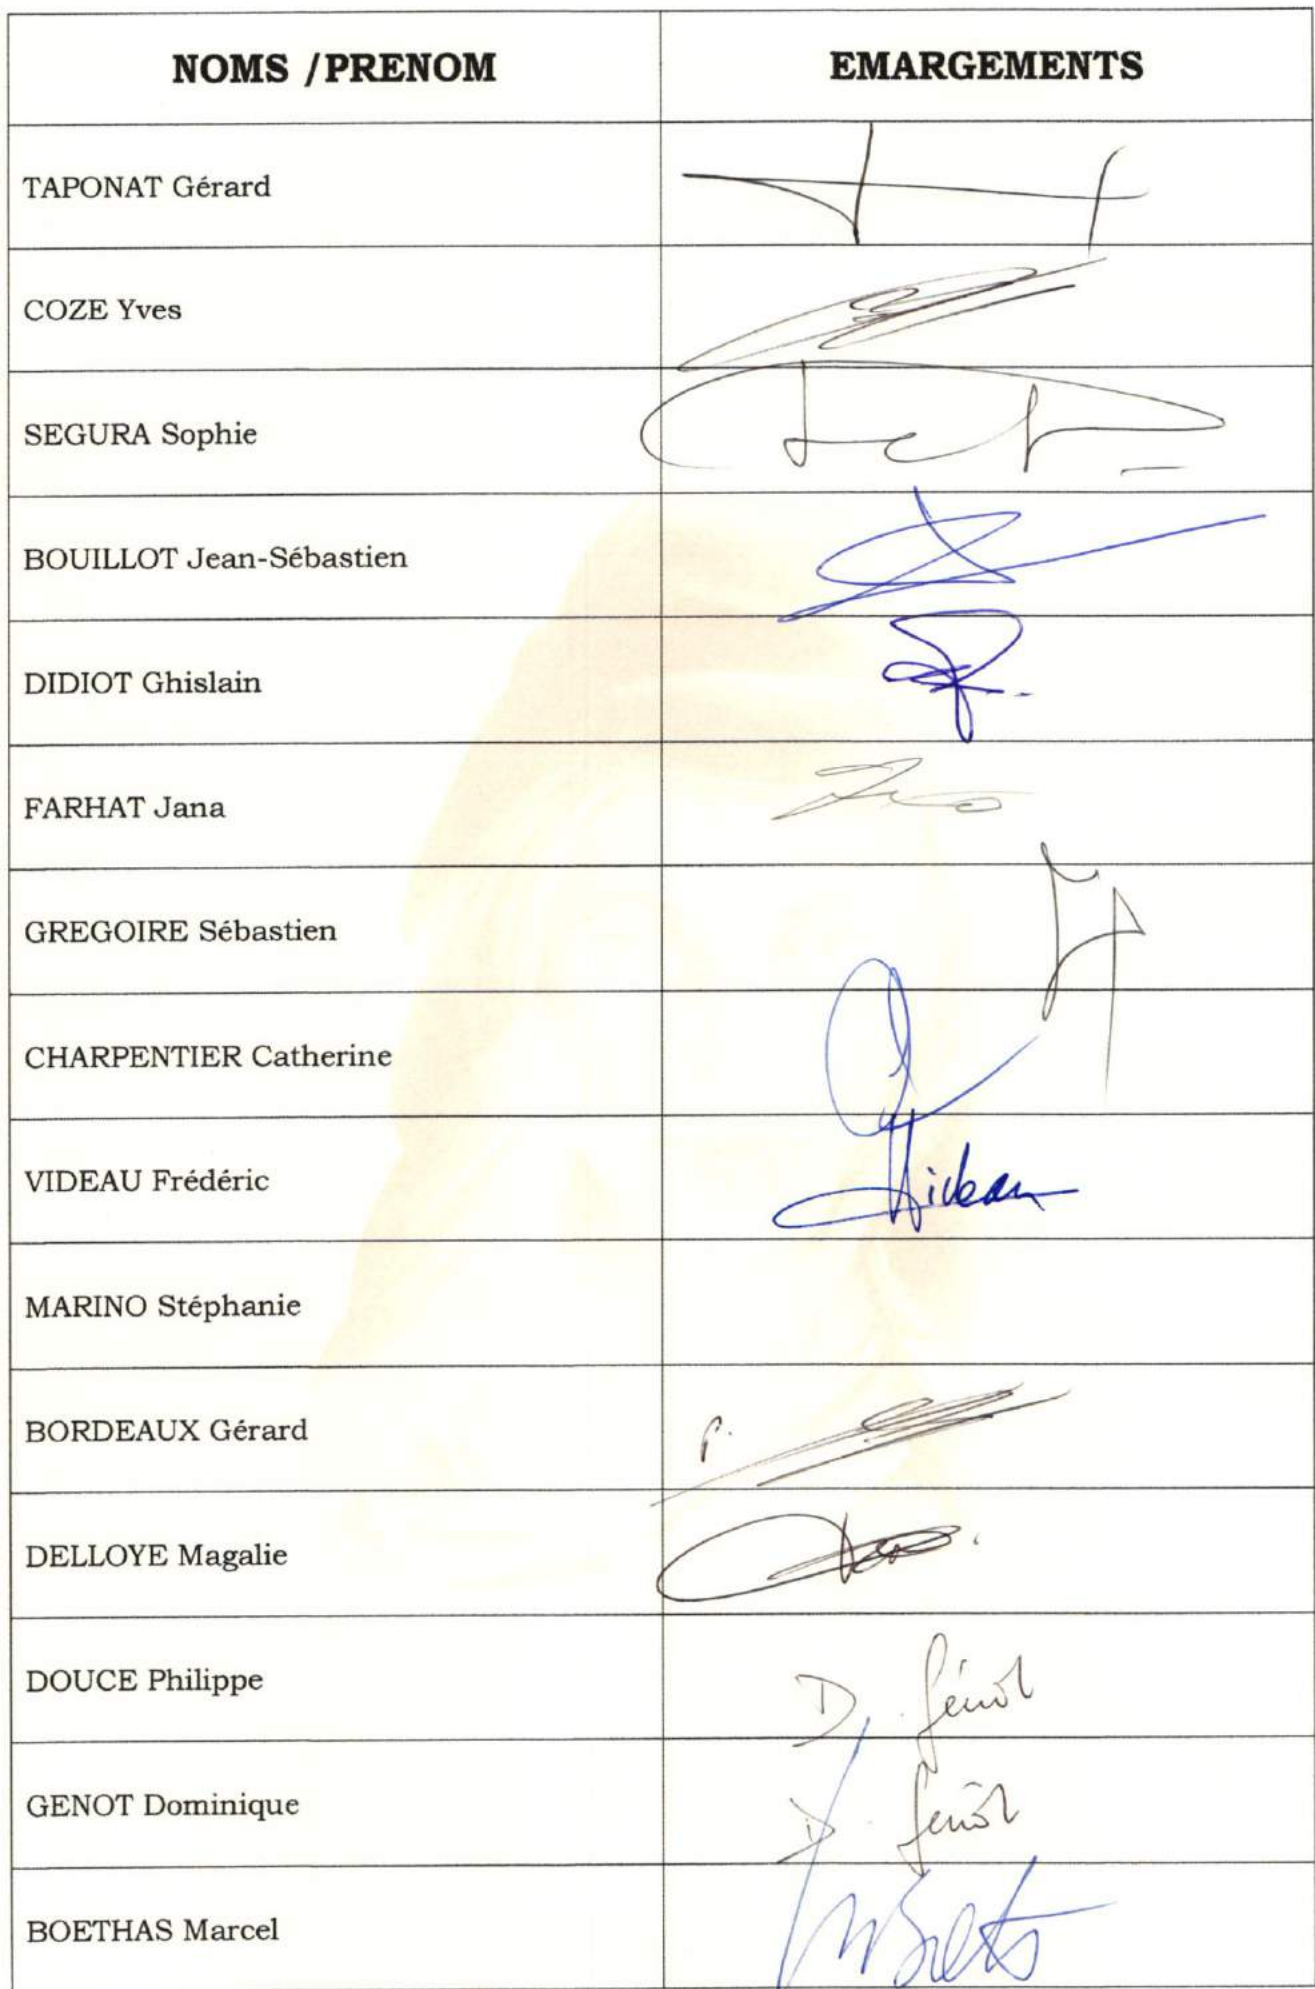 NOMS /PRENOM EMARGEMENTS
TAPONAT Gérard
COZE Yves
SEGURA Sophie
BOUILLOT Jean-Sébastien
DIDIOT Ghislain
FARHAT Jana
GREGOIRE Sébastien
CHARPENTIER Catherine
VIDEAU Frédéric Videau
MARINO Stéphanie
BORDEAUX Gérard P.
DELLOYE Magalie
DOUCE Philippe D. Génot
GENOT Dominique D. Génot
BOETHAS Marcel